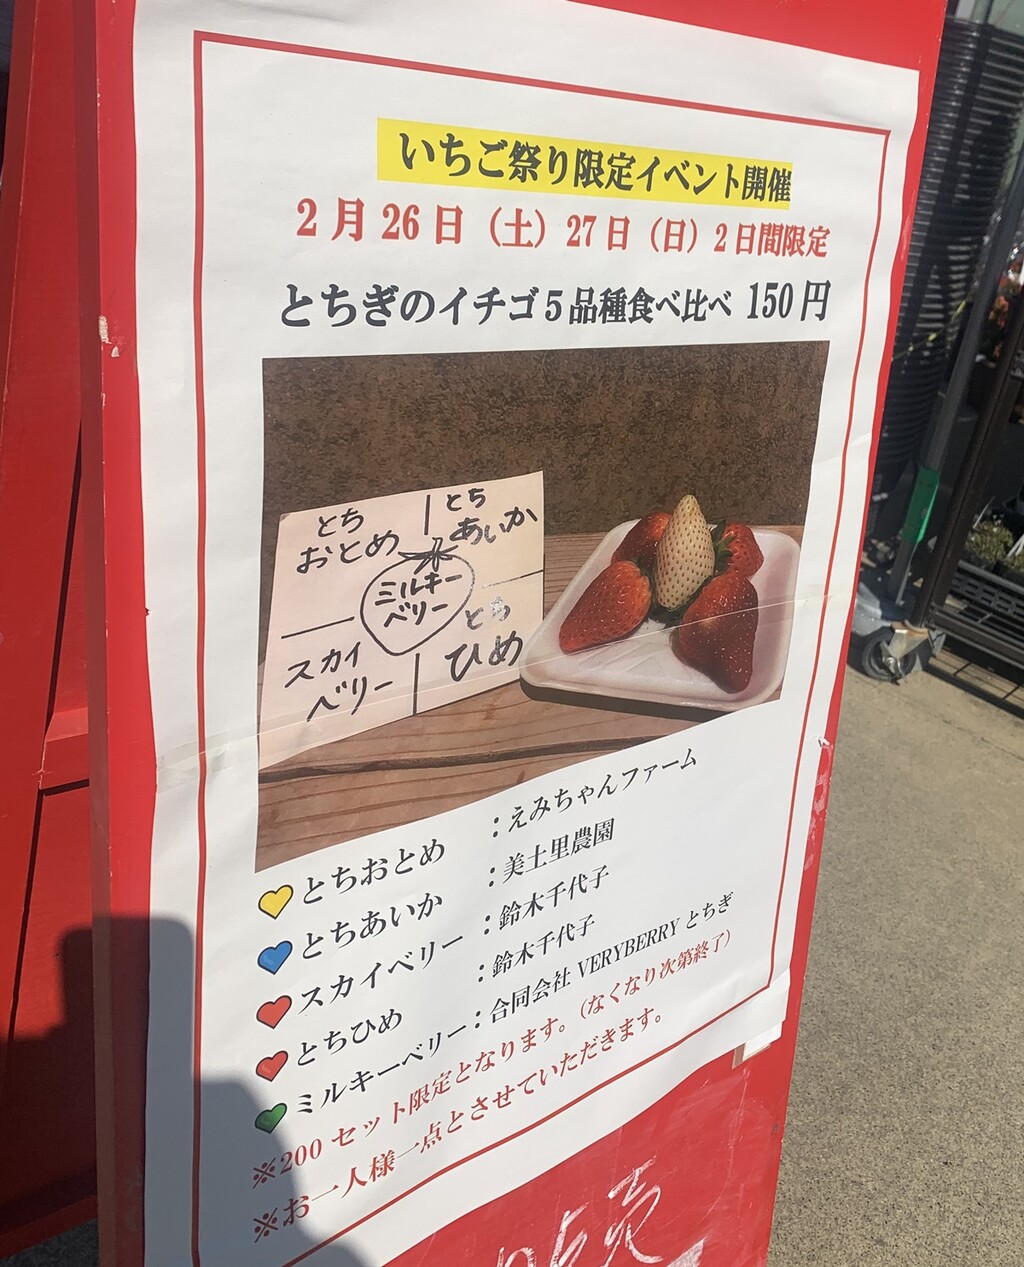 いちご祭り限定イベント開催
2月26日（土）27日（日）2日間限定
とちぎのイチゴ５品種食べ比べ 150円
とち
おとめ
とち
あいか
ミルキー
ベリー
スカイ
ベリー
とち
ひめ
とちおとめ：えみちゃんファーム
とちあいか：美土里農園
スカイベリー：鈴木千代子
とちひめ：鈴木千代子
ミルキーベリー：合同会社 VERYBERRY とちぎ
※200セット限定となります。（なくなり次第終了）
※お一人様一点とさせていただきます。
売